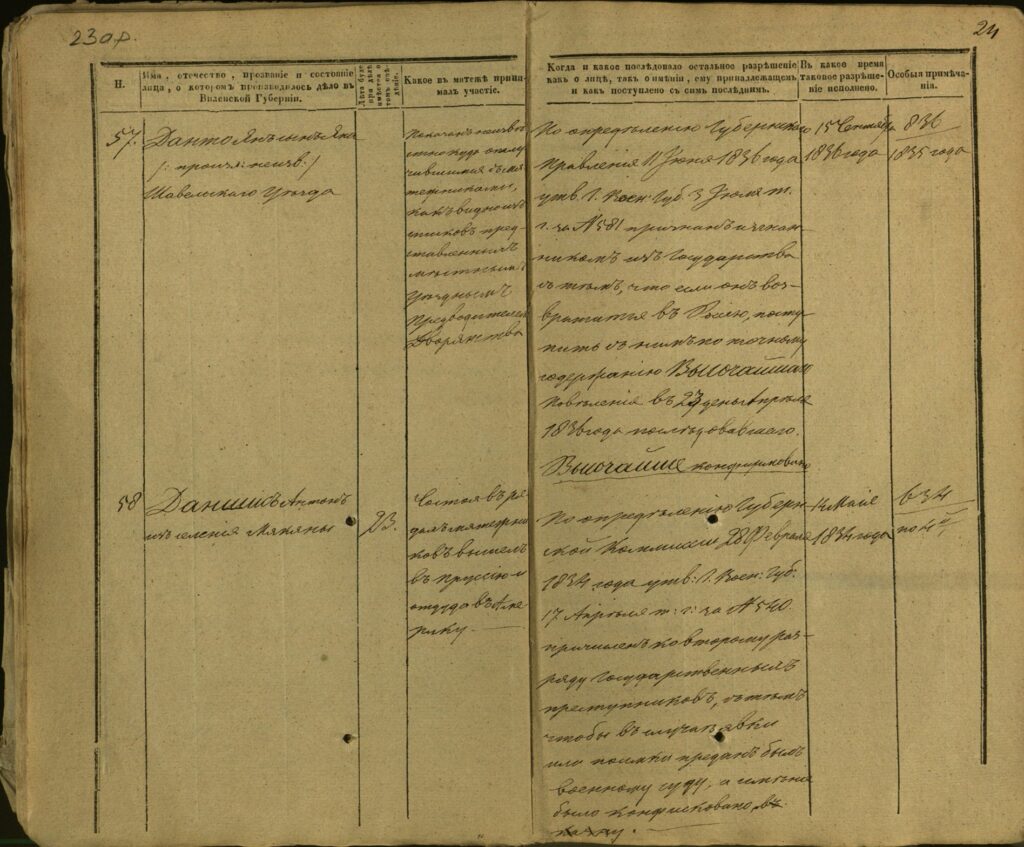 23 об.
24
Н.
Имя, отечество, прозваніе и состояніе
лица, о которомъ производилось дѣло въ
Виленской Губерніи.
Какое въ мятежѣ прини-
малъ участіе.
Когда и какое послѣдовало остальное разрѣшеніе
какъ о лицѣ, такъ о имѣніи, ему принадлежащемъ
и как поступлено съ симъ послѣднимъ.
Въ какое время
таковое разрѣше-
ніе исполнено.
Особыя примѣча-
нія.
57.
Данто
Шавельскаго Уѣзда
какъ видно изъ
списковъ пред-
ставленныхъ
мѣстнымъ
уѣзднымъ
Предводителемъ
Дворянства
По опредѣленію Губернскаго
Правленія 11 Іюня 1836 года
утв. Г. Воен: Губ. 3 Іюля т.
г. за № 581 признанъ изгнан-
никомъ изъ Государства
съ тѣмъ, что если онъ воз-
вратится въ Россію, посту-
пить съ нимъ по точному
содержанію Высочайшаго
повѣленія въ 23 день Апрѣля
года послѣдовавшего.
Высочайше конфирмовано
15 Сентября
1836 года
836
1835 года
58
Даншисъ Антонъ
изъ селенія Мякяны
23.
Состоя въ ря-
дахъ мятежни-
ковъ вышелъ
въ Пруссію и
оттуда въ Аме-
рику.
По опредѣленію Губерн-
ской Коммисіи 28 Февраля
1834 года утв: Г. Воен: Губ.
17 Апрѣля т: г: за № 540
причисленъ ко второму раз-
ряду государственныхъ
преступниковъ, съ тѣмъ
чтобы въ случаѣ явки
или поимки преданъ былъ
военному суду, а имѣніе
было конфисковано въ
казну.
14 Маія
1834 года
634
по 4